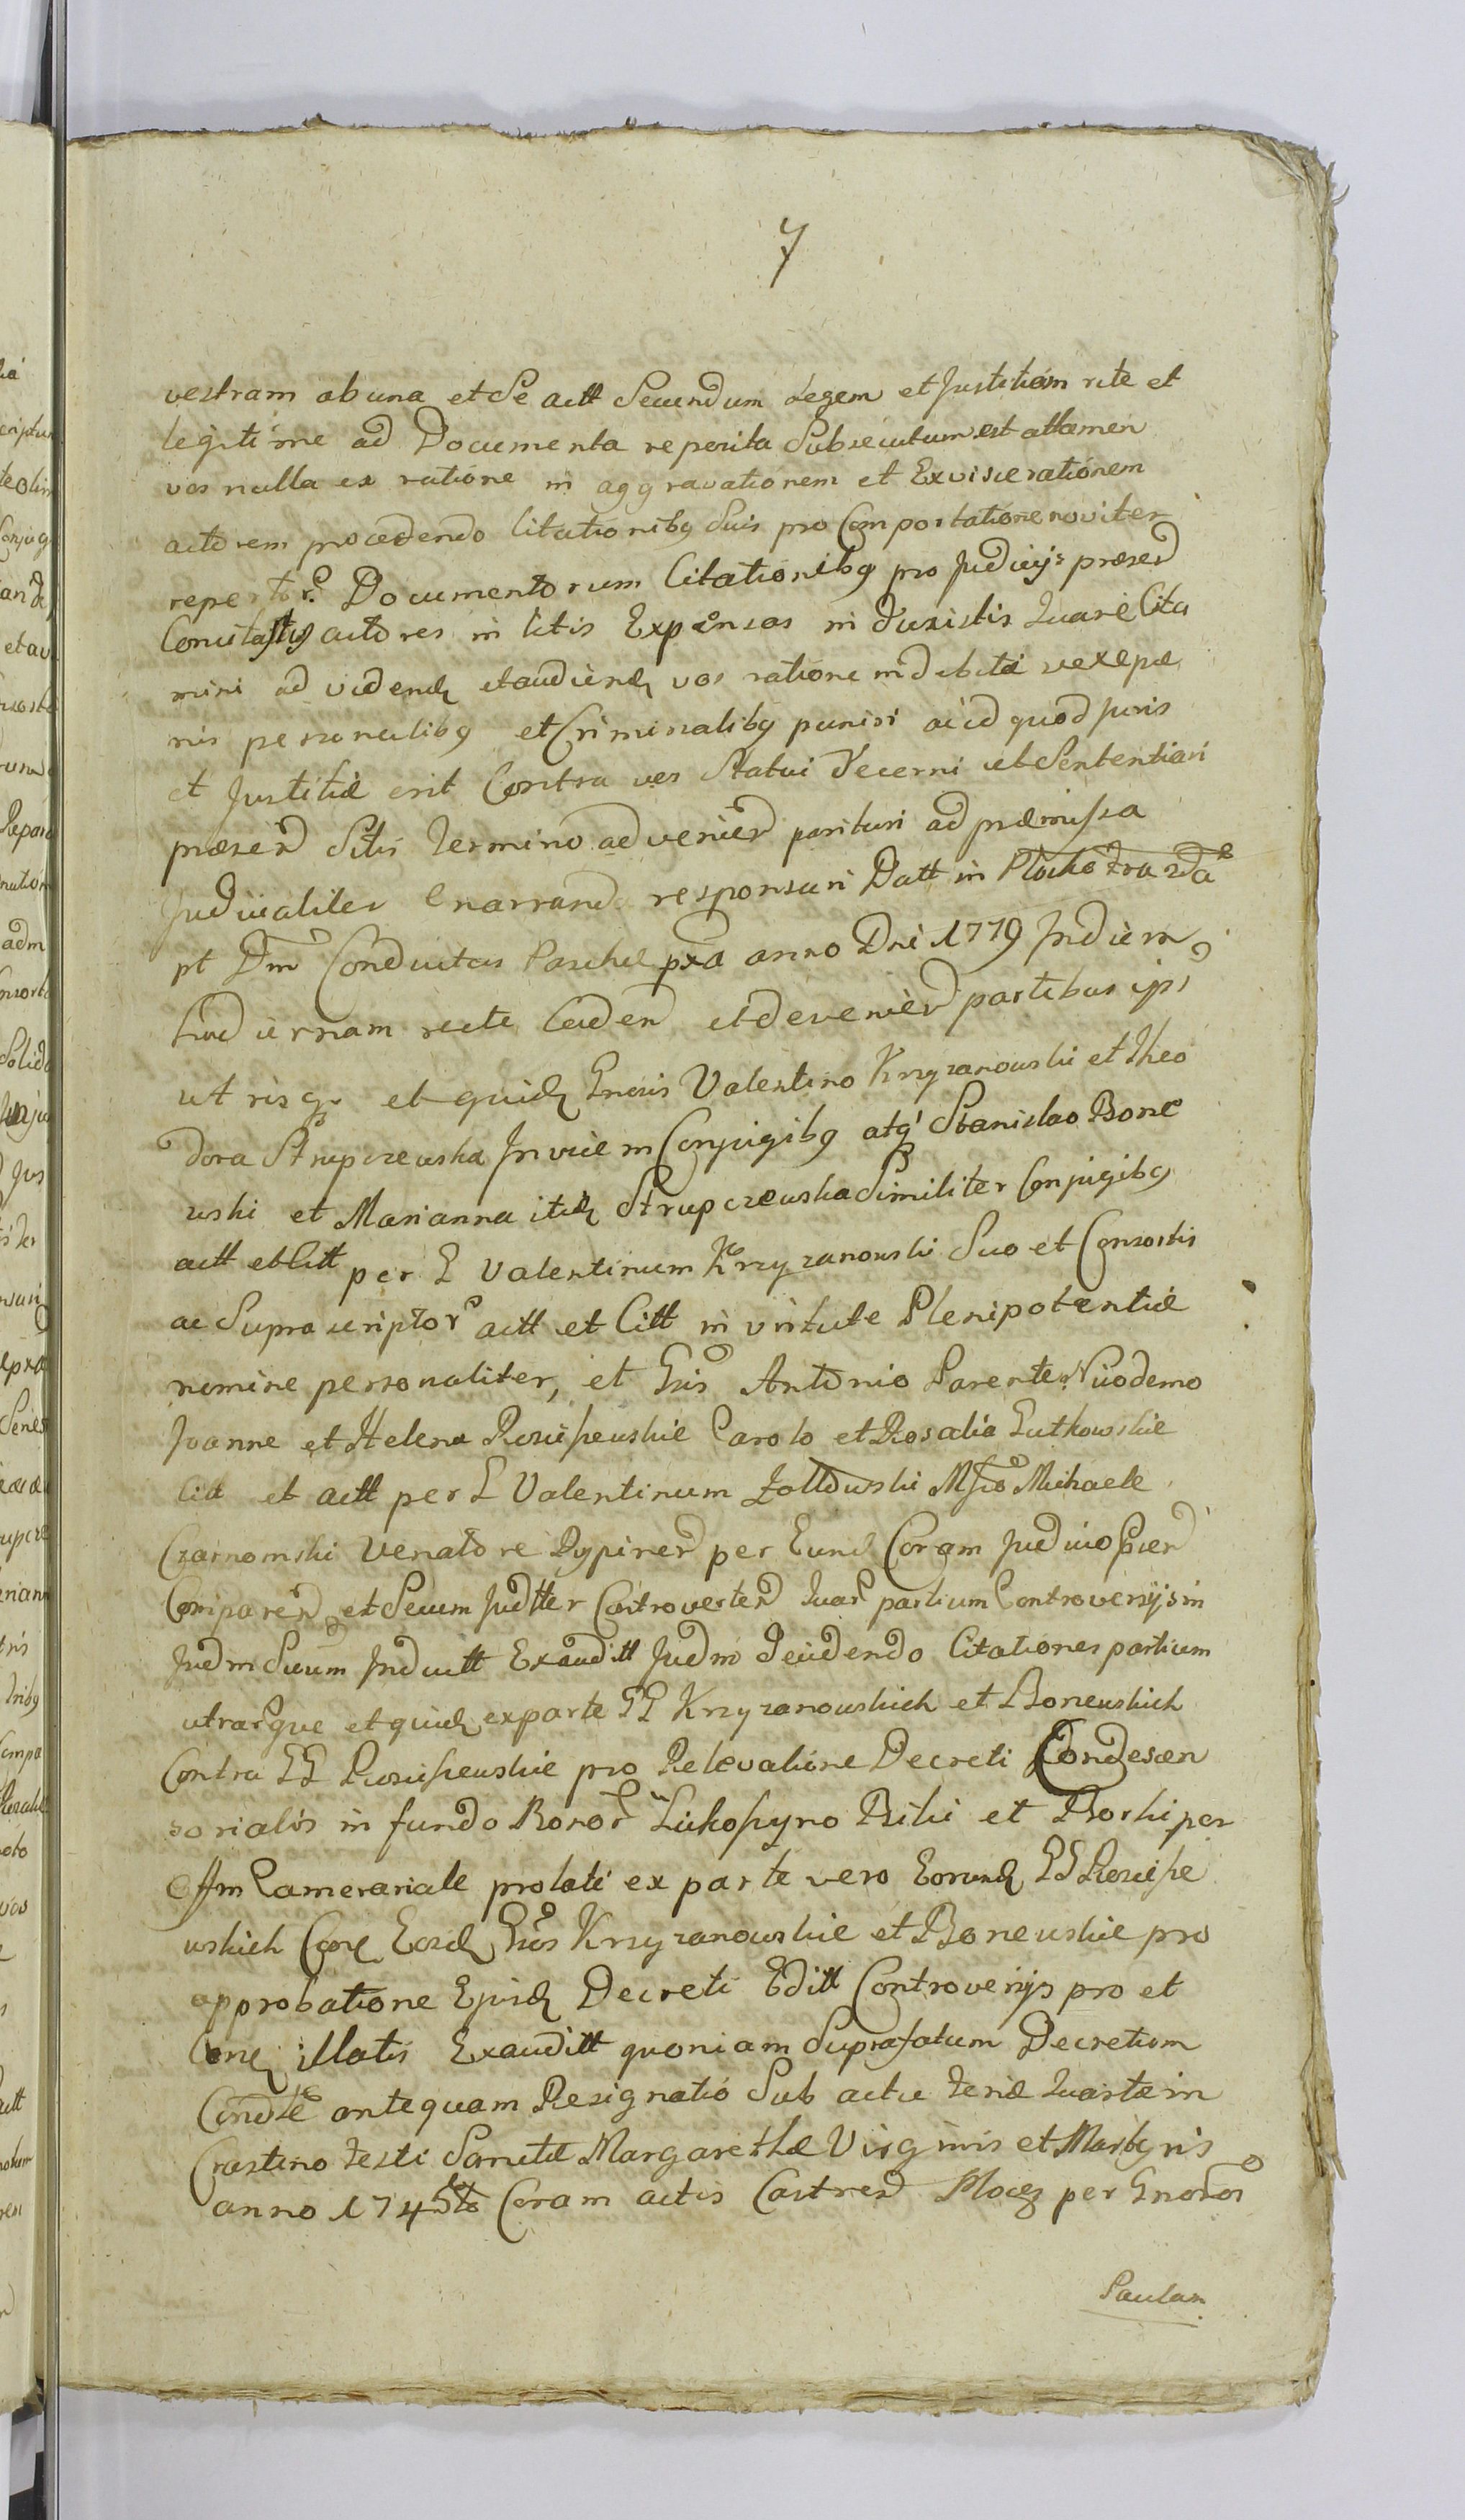 7
vestram ab una et de actt Secundum Legem et Justitiam rite et
legitime ad Documenta reperita Subsecutum est attamen
vos nulla ex ratione in aggravationem et Exviscerationem
actorem procedendo Citationibq Suis pro Comportatione noviter
repertor. Documentorum Citationibq pro Judicijs præsen
actores in litis Expensas in duxistis Quare Cita
mini ad videndq et audiendq vos ratione indebitæ vexæ pæ
nis personalibq et Criminalibq puniri ac id quod Juris
et Justitiæ erit Contra vos Statui decerni et Sententiari
præsen Sitis Termino advenien parituri ad præmissa
Judicialiter enarrand responsuri Datt in Plocko
pt Dm Conductus Paschæ pxa anno Dni 1779 In diem
hodiernam recte Caden et devenien partibus ips
utrisq et quidq Gnosis Valentino Krzyzanowski et Theo
dora Strupczewska Invicem Conjugibq atq Stanislao Bone
wski et Marianna itidq Strupczewska Similiter Conjugibq
actt et Citt per G Valentinum Krzyzanowski Suo et Consortis
ac Suprascriptor actt et Citt in virtute Plenipotentiæ
nomine personaliter, et Gsis Antonio Parente Nicodemo
Joanne et Helena Rosciszewskie Carolo et Rosalia Gutkowskie
Citt et actt per G Valentinum Zoltowski Mfco Michaele
Czarnomski Venatore Rypinen per Eund Coram Judicio
Comparen et Secum Judtter Controverten Quar partium Controversijs in
Judm Suum Induitt Exauditt Judm Decidendo Citationes partium
utrarque et quidq ex parte GG Krzyzanowskich et Bonewskich
Contra GG Rosciszewskie pro Relevatione Decreti Condescen
sorialis in fundo Bonor Lickoszyno Biki et Borki per
Offm Camerariale prolati ex parte vero Eorundq GG Roscisze
wskich Conq Eosdq Gsos Krzyzanowskie et Bonewskie pro
approbatione Ejusdq Decreti Editt Controversijs pro et
Conq illatis Exauditt quoniam Suprafatum Decretum
antequam Resignatio Sub actu feriæ Quartæ in
Crastino Festi Sanctæ Margarethæ Virginis et Martyris
anno 1745to Coram actis Castren Plocq per Gnosos
Paulum